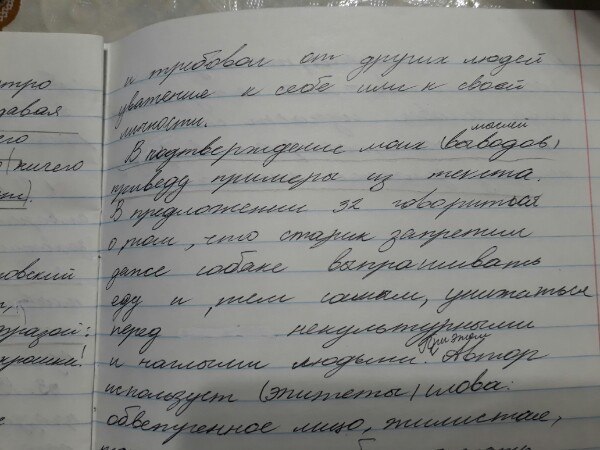 тро
давая
его
(ничего
и требовал от других людей
уважение к себе или к своей
личности.
мыслей
В подтверждение моих (выводов)
приведу примеры из текста.
В предложении 32 говориться
о том, что старик запретил
даже собаке выпрашивать
еду и, тем самым, унижаться
перед некультурными
и наглыми людьми. Автор
при этом
использует (эпитеты) слова:
обветренное лицо, жилистая,
овский
разой: